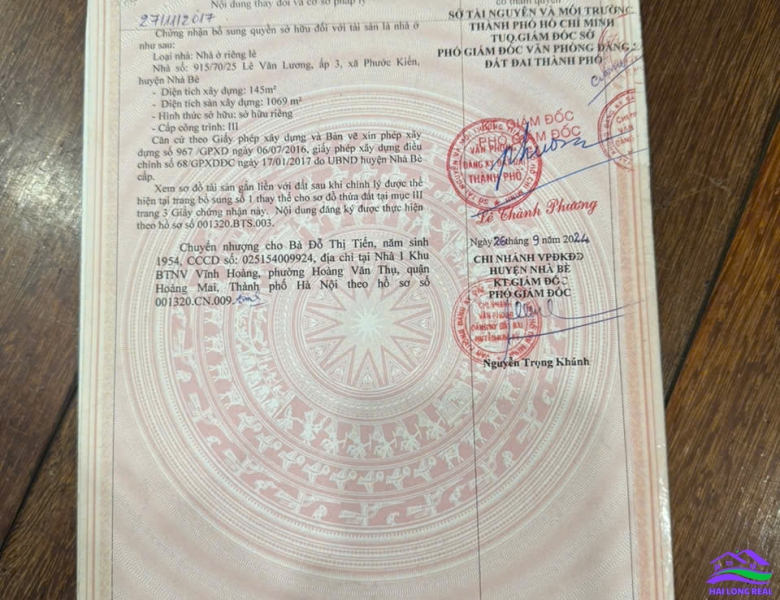 Nội dung thay đổi và cơ sở pháp lý
có thẩm quyền
27/11/2017
Chứng nhận bổ sung quyền sở hữu đối với tài sản là nhà ở
như sau:
Loại nhà: Nhà ở riêng lẻ
Nhà số: 915/70/25 Lê Văn Lương, ấp 3, xã Phước Kiển,
huyện Nhà Bè
- Diện tích xây dựng: 145m²
- Diện tích sàn xây dựng: 1069 m²
- Hình thức sở hữu: sở hữu riêng
- Cấp công trình: III
Căn cứ theo Giấy phép xây dựng và Bản vẽ xin phép xây
dựng số 967 /GPXD ngày 06/07/2016, giấy phép xây dựng điều
chỉnh số 68/GPXDĐC ngày 17/01/2017 do UBND huyện Nhà Bè
cấp.
Xem sơ đồ tài sản gắn liền với đất sau khi chỉnh lý được thể
hiện tại trang bổ sung số 1 thay thế cho sơ đồ thửa đất tại mục III
trang 3 Giấy chứng nhận này. Nội dung đăng ký được thực hiện
theo hồ sơ số 001320.BTS.003.
SỞ TÀI NGUYÊN VÀ MÔI TRƯỜNG
THÀNH PHỐ HỒ CHÍ MINH
TUQ.GIÁM ĐỐC SỞ
PHÓ GIÁM ĐỐC VĂN PHÒNG ĐĂNG
ĐẤT ĐAI THÀNH PHỐ
GIÁM ĐỐC
PHÓ GIÁM ĐỐC
VĂN PHÒNG
ĐĂNG KÝ ĐẤT ĐAI
THÀNH PHỐ
Lê Thành Phương
Chuyển nhượng cho Bà Đỗ Thị Tiến, năm sinh
1954, CCCD số: 025154009924, địa chỉ tại Nhà 1 Khu
BTNV Vĩnh Hoàng, phường Hoàng Văn Thụ, quận
Hoàng Mai, Thành phố Hà Nội theo hồ sơ số
001320.CN.009.
Ngày 26 tháng 9 năm 2024
CHI NHÁNH VPĐKĐĐ
HUYỆN NHÀ BÈ
KT.GIÁM ĐỐC
PHÓ GIÁM ĐỐC
Nguyễn Trọng Khánh
HAI LONG REAL